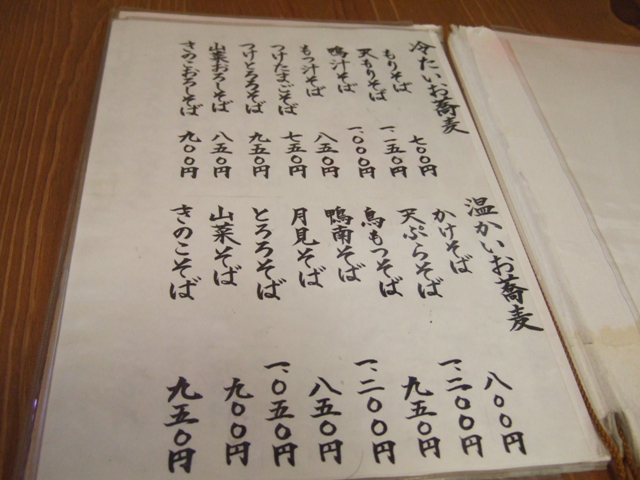 冷たいお蕎麦
もりそば 七〇〇円
天もりそば 一、一五〇円
鴨汁そば 一、〇〇〇円
もつ汁そば 八五〇円
つけたまごそば 七五〇円
つけとろろそば 九五〇円
山菜おろしそば 八五〇円
きのこおろしそば 九〇〇円
温かいお蕎麦
かけそば 八〇〇円
天ぷらそば 一、二〇〇円
鳥もつそば 九五〇円
鴨南そば 一、二〇〇円
月見そば 八五〇円
とろろそば 一、〇五〇円
山菜そば 九〇〇円
きのこそば 九五〇円